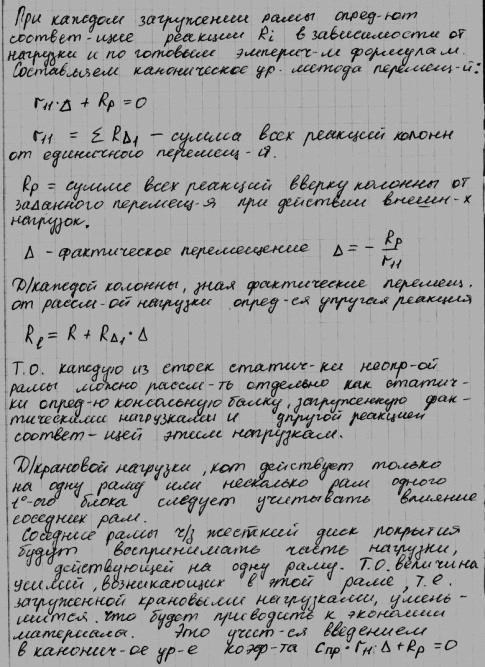 При каждом загружении рамы опред-ют
соответ-щие реакции Ri в зависимости от
нагрузки и по готовым эмперич-м формулам.
Составляем каноническое ур. метода перемещ-й:
r11·Δ + Rp = 0
r11 = Σ RΔ1 – сумма всех реакций колонн
от единичного перемещ-я.
Rp = сумме всех реакций вверху колонны от
заданного перемещ-я при действии внешн-х
нагрузок.
Δ - фактическое перемещение Δ = - Rp/r11
Д/каждой колонны, зная фактические перемещ.
от рассм-ой нагрузки опред-ся упругая реакция
Rℓ = R + RΔ1·Δ
Т.О. каждую из стоек статич-ки неопр-ой
рамы можно рассм-ть отдельно как статич-
ки опред-ю консольную балку, загруженную фак-
тическими нагрузками и упругой реакцией
соответ-щей этим нагрузкам.
Д/крановой нагрузки, кот действует только
на одну раму или несколько рам одного
t°-ого блока следует учитывать влияние
соседних рам.
Соседние рамы ч/з жесткий диск покрытия
будут воспринимать часть нагрузки,
действующей на одну раму. Т.О. величина
усилий, возникающих в этой раме, т.е.
загруженной крановыми нагрузками, умень-
шится что будет приводить к экономии
материала. Это учит-ся введением
в канонич-ое ур-е коэф-та Cпр·r11·Δ+Rp=0